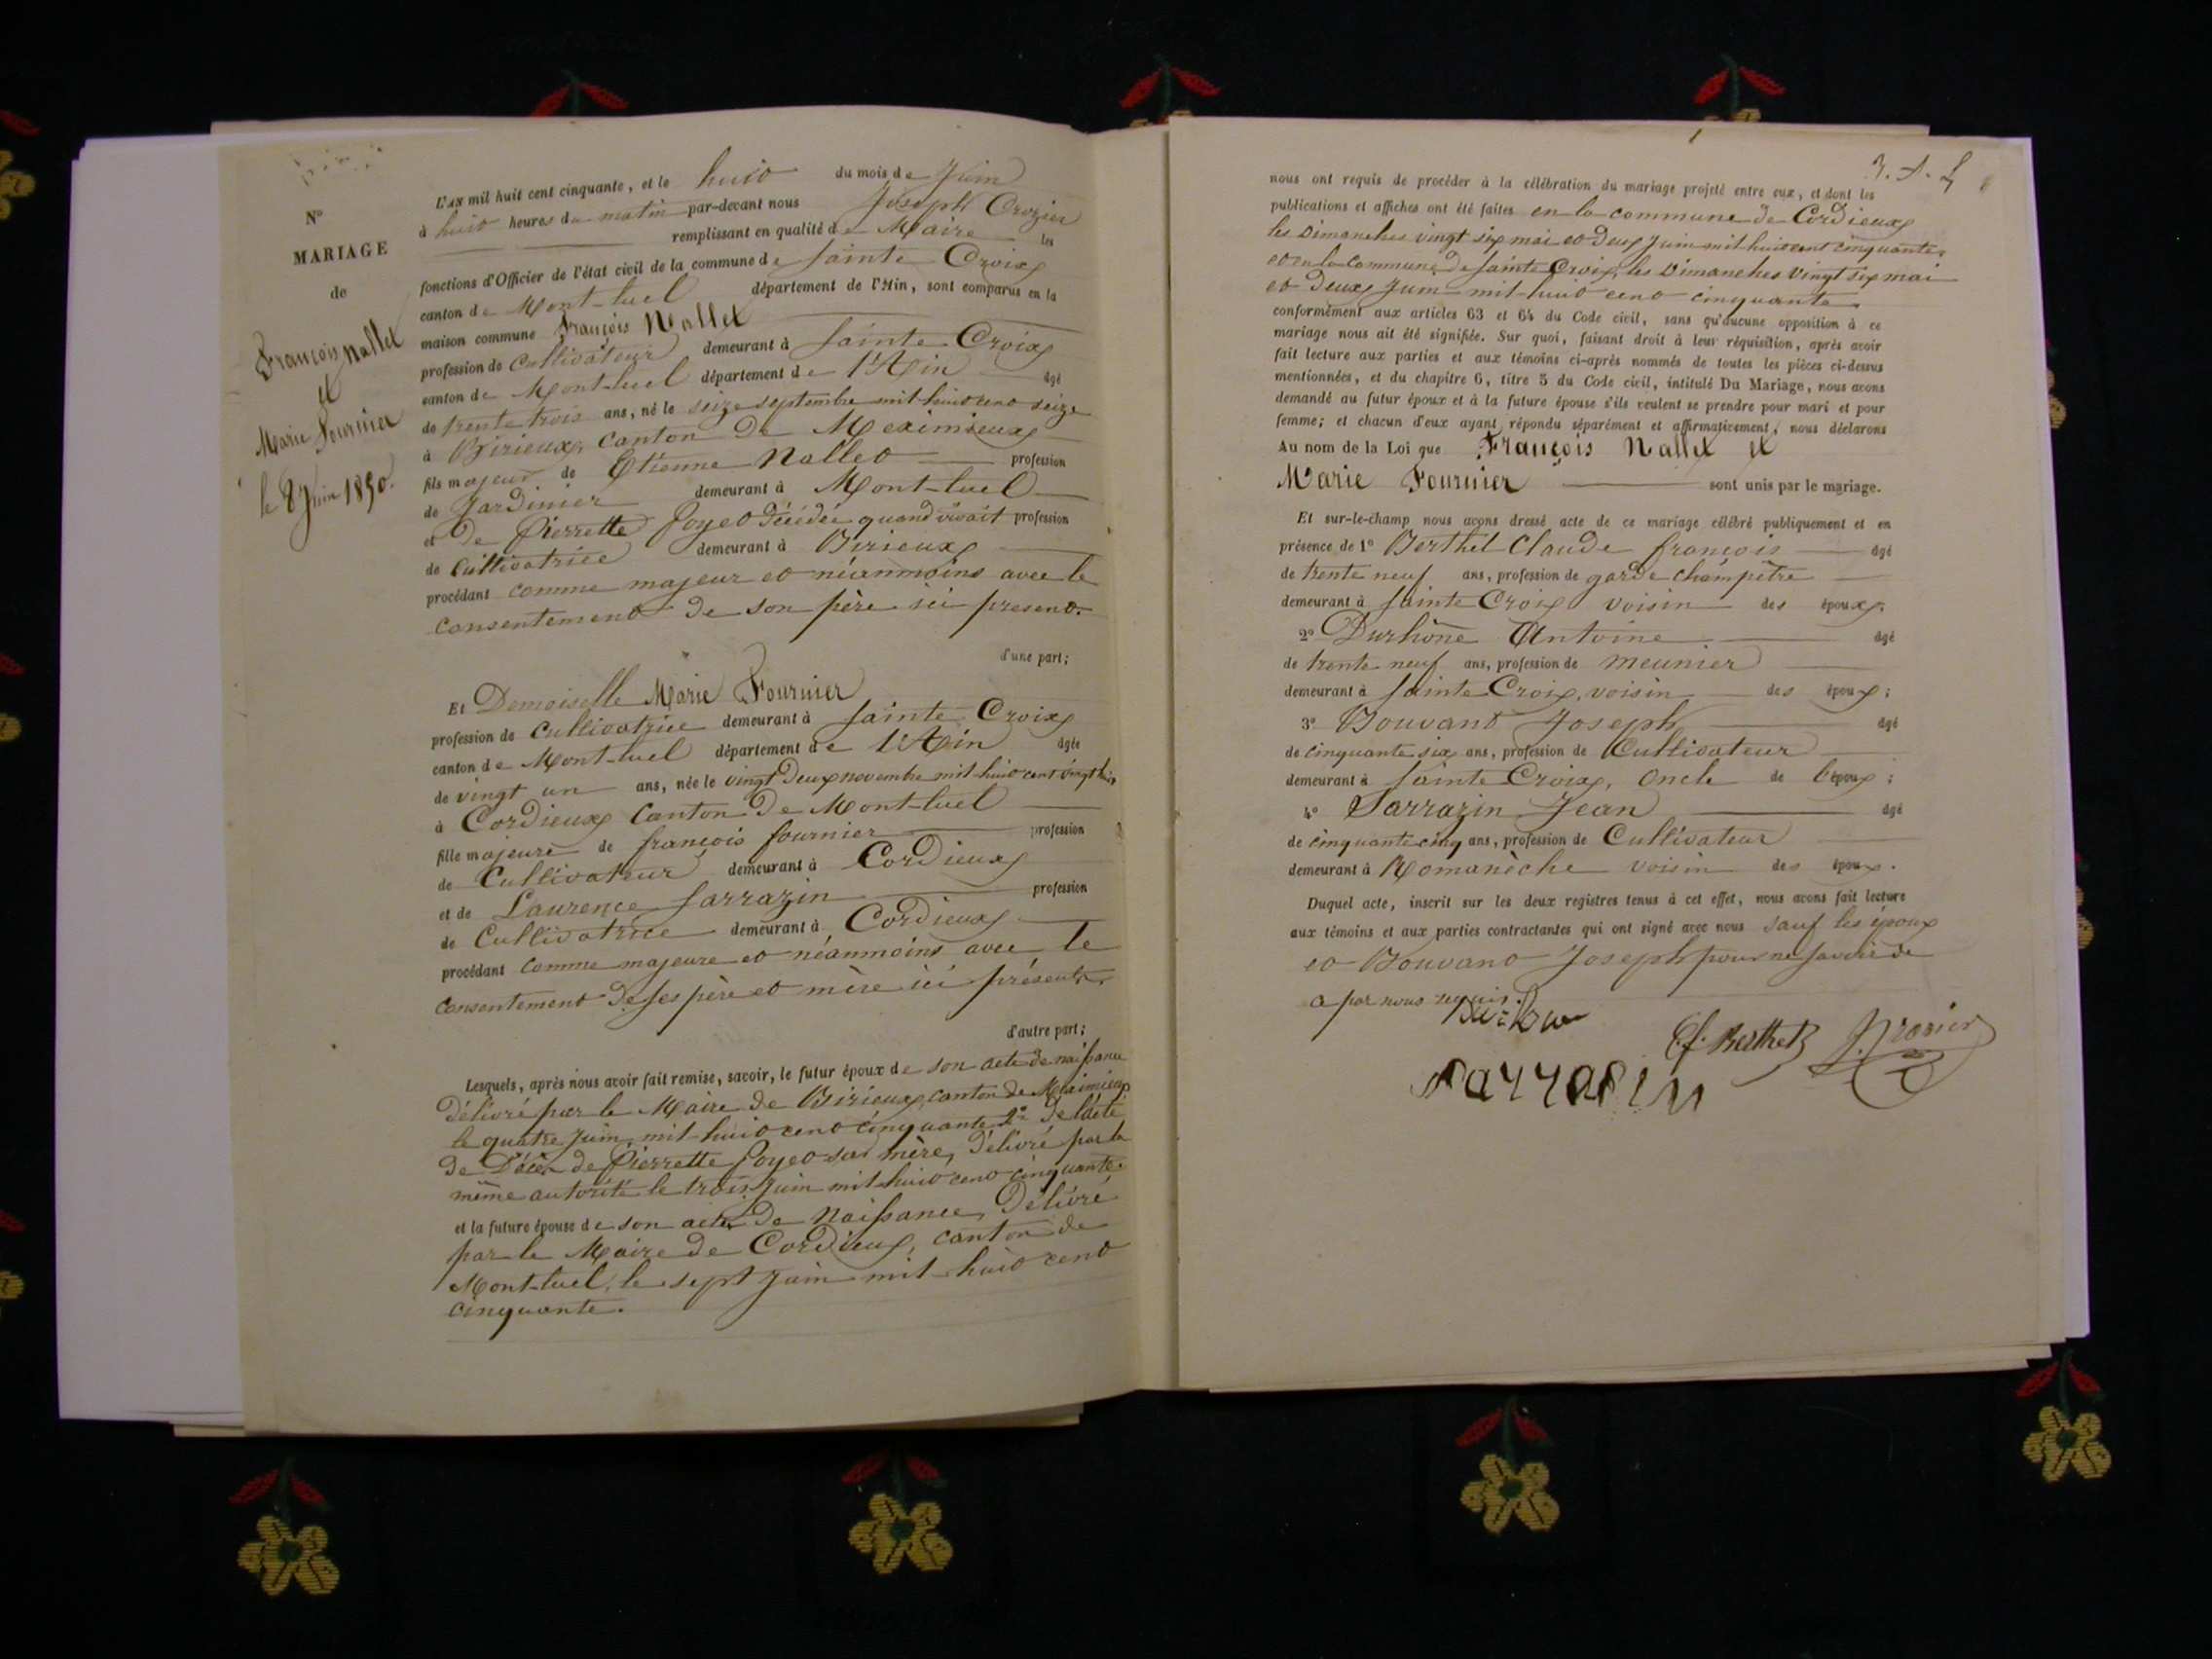 N°
MARIAGE
de
François Nallet
et
Marie Fournier
le 8 Juin 1850.
L'AN mil huit cent cinquante, et le huit du mois de Juin
à huit heures du matin par-devant nous Joseph Crozier
remplissant en qualité de Maire les
fonctions d'Officier de l'état civil de la commune de Sainte Croix
canton de Mont-luel département de l'Ain, sont comparus en la
maison commune François Nallet
profession de Cultivateur demeurant à Sainte Croix
canton de Mont-luel département de l'Ain âgé
de trente trois ans, né le seize septembre mil huit cent seize
à Birieux, Canton de Meximieux
fils majeur de Etienne Nallet profession
de Jardinier demeurant à Mont-luel
et de Pierrette Joyet décédée quand vivait profession
de Cultivatrice demeurant à Birieux
procédant comme majeur et néanmoins avec le
consentement de son père ici présent.
d'une part;
Et Demoiselle Marie Fournier
profession de Cultivatrice demeurant à Sainte Croix
canton de Mont-luel département de l'Ain âgée
de vingt un ans, née le vingt deux novembre mil huit cent vingt huit
à Cordieux Canton de Mont-luel
fille majeure de françois fournier profession
de Cultivateur demeurant à Cordieux
et de Laurence Sarrazin profession
de Cultivatrice demeurant à Cordieux
procédant comme majeure et néanmoins avec le
consentement de ses père et mère ici présents.
d'autre part;
Lesquels, après nous avoir fait remise, savoir, le futur époux de son acte de naissance
délivré par le Maire de Birieux, canton de Meximieux
le quatre juin mil huit cent cinquante 2° de l'acte
de Décès de Pierrette Joyet sa mère, délivré par la
même autorité le trois Juin mil huit cent cinquante.
et la future épouse de son acte de Naissance, Délivré
par le Maire de Cordieux, canton de
Mont-luel, le sept Juin mil huit cent
cinquante.
nous ont requis de procéder à la célébration du mariage projeté entre eux, et dont les
publications et affiches ont été faites en la commune de Cordieux
les Dimanches vingt six mai et deux Juin mil huit cent cinquante,
et en la commune de Sainte Croix, les Dimanches vingt six mai
et deux Juin mil huit cent cinquante.
conformément aux articles 63 et 64 du Code civil, sans qu'aucune opposition à ce
mariage nous ait été signifiée. Sur quoi, faisant droit à leur réquisition, après avoir
fait lecture aux parties et aux témoins ci-après nommés de toutes les pièces ci-dessus
mentionnées, et du chapitre 6, titre 5 du Code civil, intitulé Du Mariage, nous avons
demandé au futur époux et à la future épouse s'ils veulent se prendre pour mari et pour
femme; et chacun d'eux ayant répondu séparément et affirmativement, nous déclarons
Au nom de la Loi que François Nallet et
Marie Fournier sont unis par le mariage.
Et sur-le-champ nous avons dressé acte de ce mariage célébré publiquement et en
présence de 1° Berthet Claude françois âgé
de trente neuf ans, profession de garde champêtre
demeurant à Sainte Croix voisin des époux;
2° Durhône Antoine âgé
de trente neuf ans, profession de meunier
demeurant à Sainte Croix, voisin des époux;
3° Bouvant Joseph âgé
de cinquante six ans, profession de Cultivateur
demeurant à Sainte Croix, Oncle de l'époux;
4° Sarrazin Jean âgé
de cinquante cinq ans, profession de Cultivateur
demeurant à Romanèche voisin des époux.
Duquel acte, inscrit sur les deux registres tenus à cet effet, nous avons fait lecture
aux témoins et aux parties contractantes qui ont signé avec nous sauf les époux
et Bouvant Joseph pour ne savoir de
ce par nous requis.
C.f. Berthet J. Crozier
Sarrasin